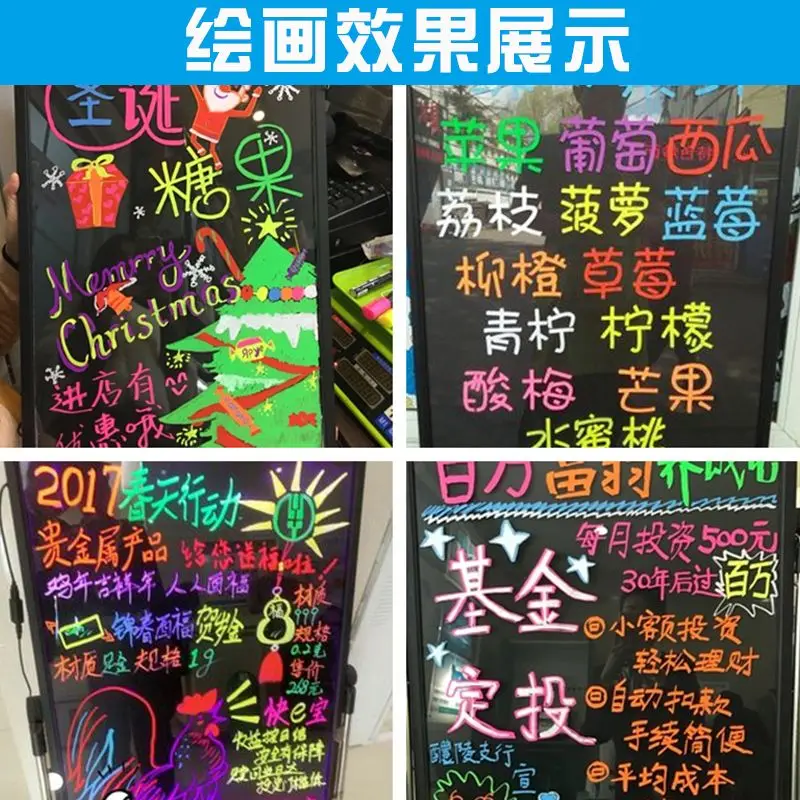 绘画效果展示
圣诞
糖果
Memrry
Christmas
进店有
优惠哦
苹果 葡萄 西瓜
荔枝 菠萝 蓝莓
柳橙 草莓
青柠 柠檬
酸梅 芒果
水蜜桃
2017春天行动
贵金属产品
鸡年吉祥年 人人酉福
锦春酉福 贺岁金
材质足金 规格1g
福
材质
999
规格
0.2克
售价
268元
快e宝
百万富翁
基金
定投
每月投资500元
30年后过百万
小额投资
轻松理财
自动扣款
手续简便
平均成本
醴陵支行
宣